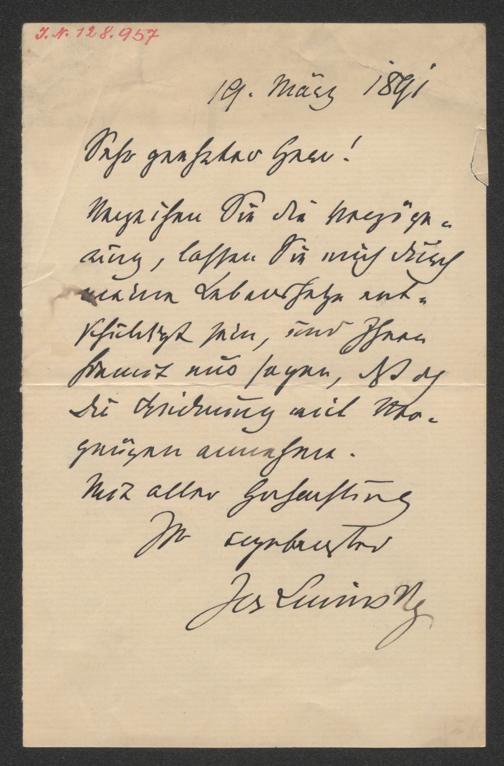 I. N. 128.957
19. März 1891
Sehr geehrter Herr!
Verzeihen Sie die Verzöge-
rung, lassen Sie mich durch
meine Lebenshetze ent-
schuldigt sein, und Ihnen
hiemit nur sagen, daß ich
die Widmung mit Ver-
gnügen annehme.
Mit aller Hochachtung
Ihr ergebenster
Jos Lewinsky